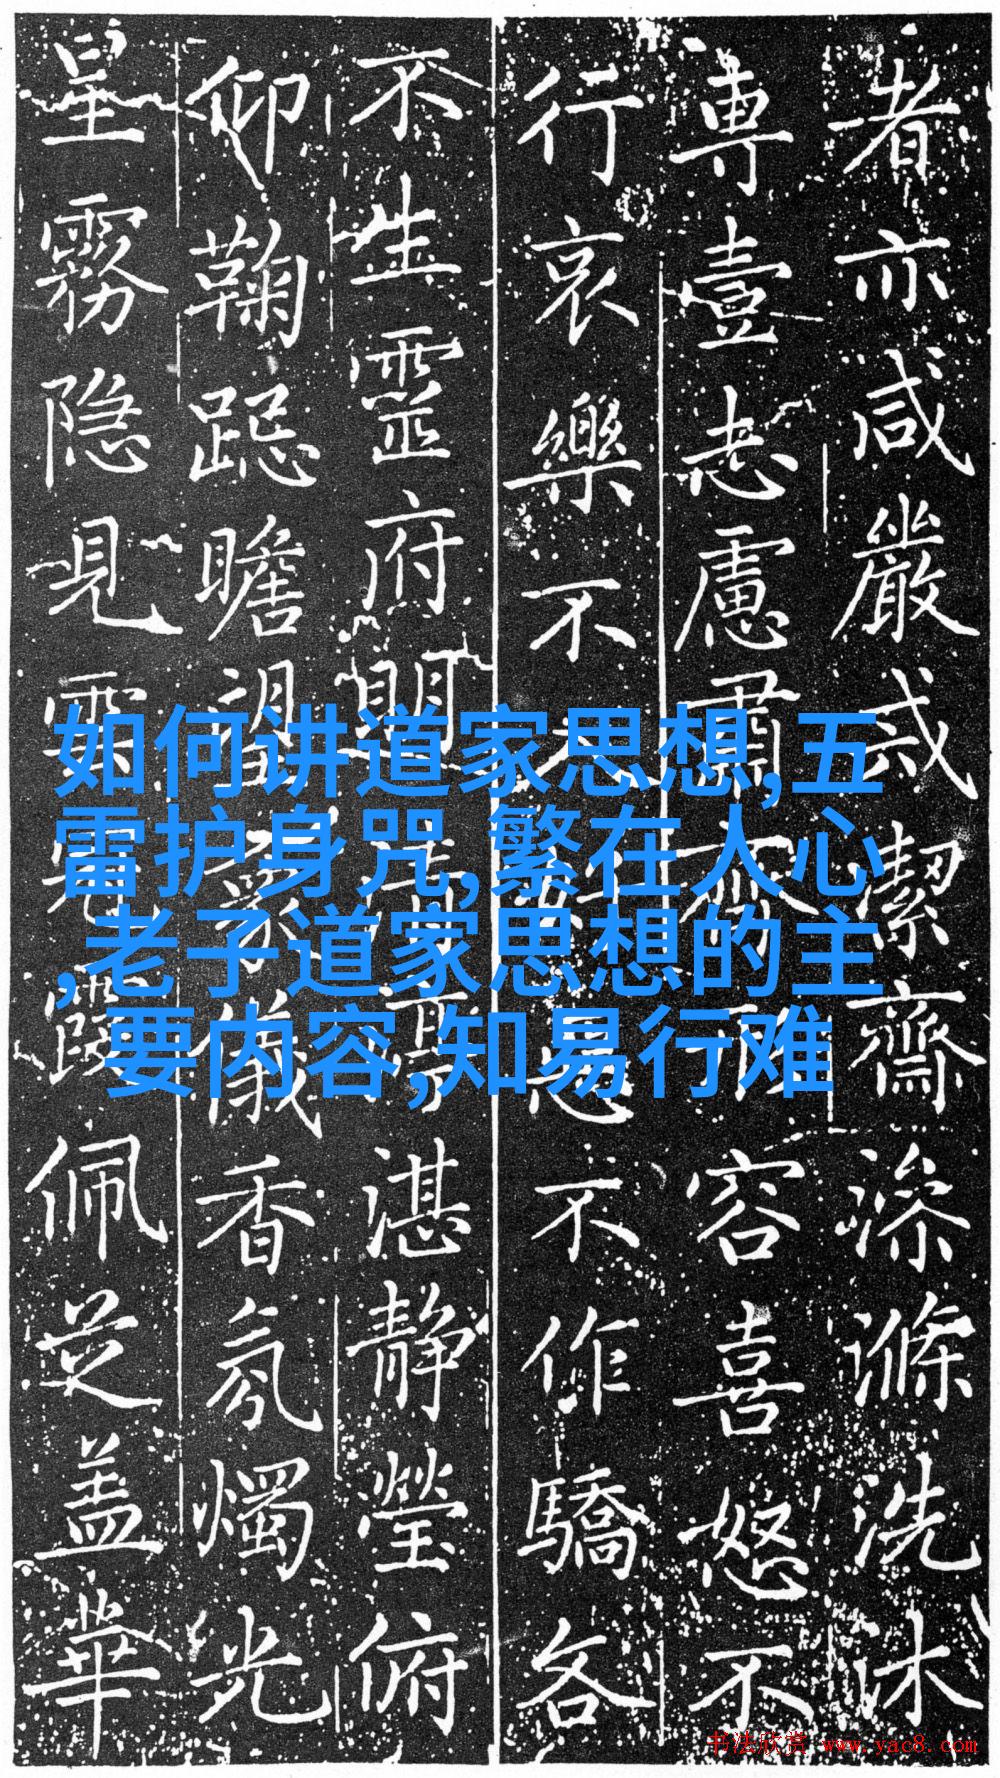 如何讲道家思想,五
雷护身咒,繁在人心
,老子道家思想的主
要内容,知易行难
者亦咸嚴戒潔齋澡滌洗沐
專壹志慮肅齊容喜怒不
行哀樂不不作驕各
不生靈府閑湛静瑩俯
仰鞠跽瞻望儀香氛燭光
星霧隐見雲佩芝盖華
书法欣赏 www.yac8.com